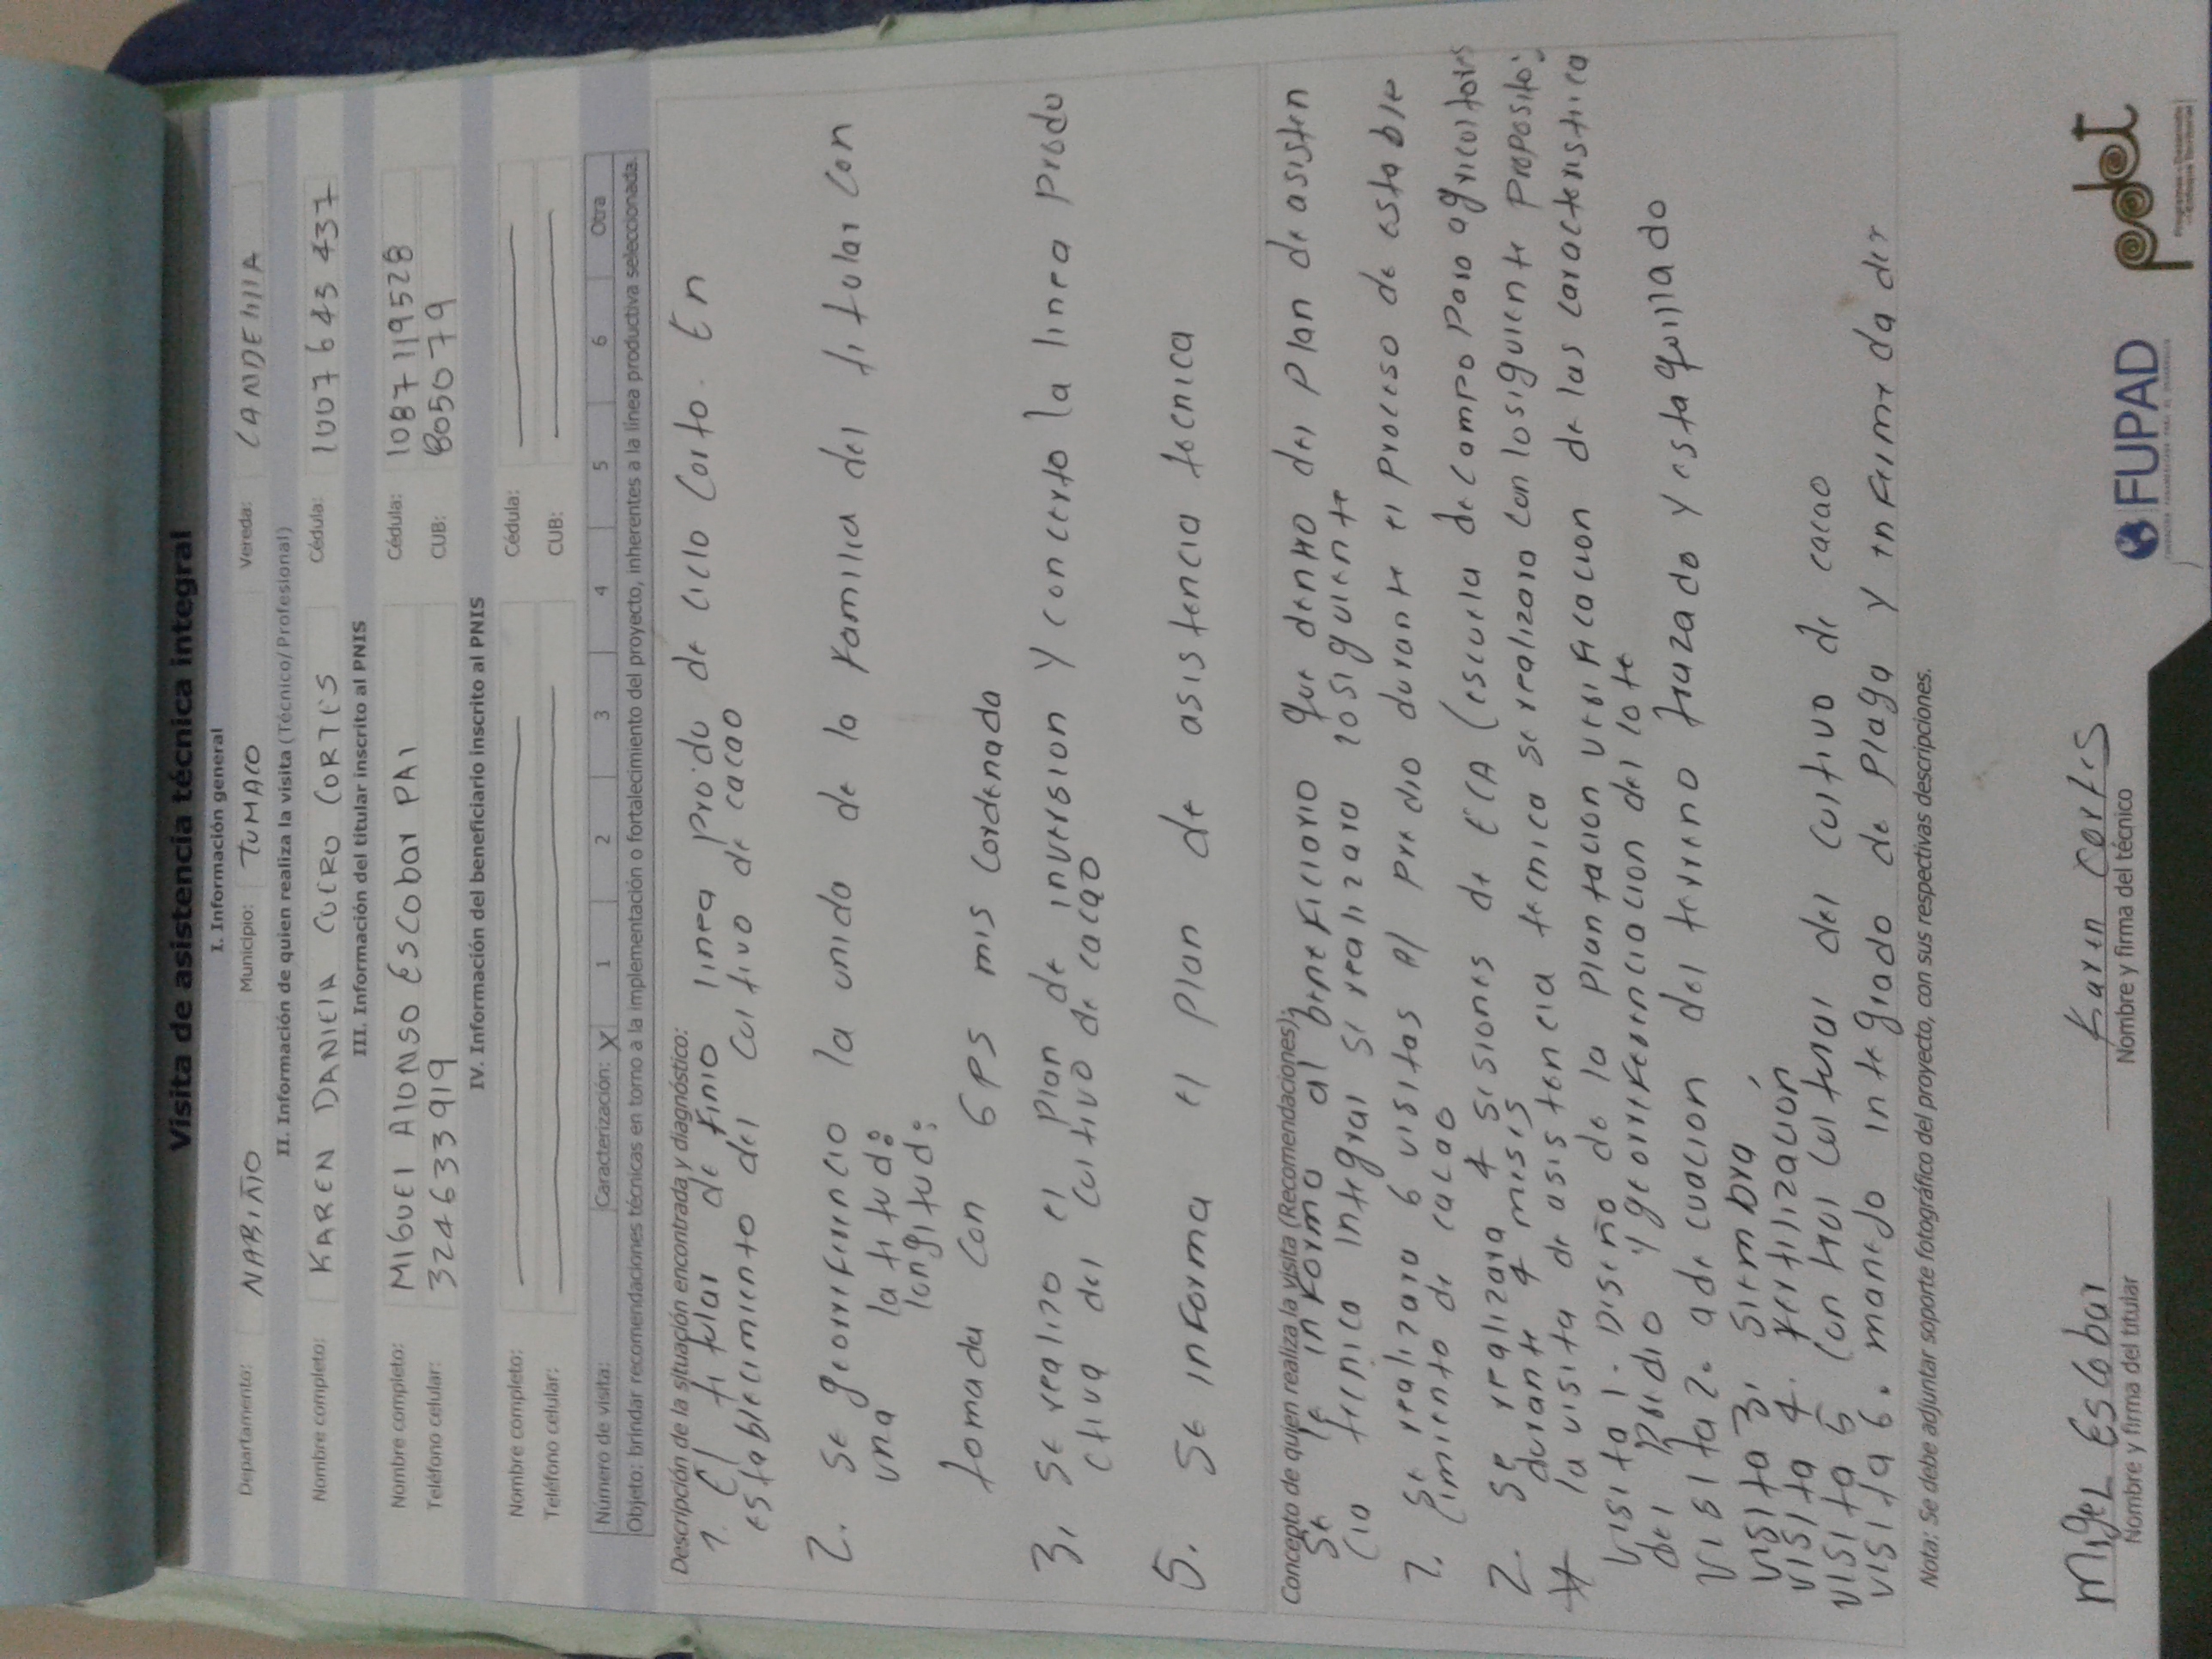 Visita de asistencia técnica integral
I. Información general
Departamento: NARIÑO Municipio: TUMACO Vereda: CANDElllA
II. Información de quien realiza la visita (Técnico/Profesional)
Nombre completo: KAREN DANIElA CUERO CORTÉS Cédula: 1007643437
III. Información del titular inscrito al PNIS
Nombre completo: MIGUEl AlONSO ESCObar PAI Cédula: 1087119528
Teléfono celular: 3246333919 CUB: 805079
IV. Información del beneficiario inscrito al PNIS
Nombre completo: Cédula:
Teléfono celular: CUB:
Número de visita: Caracterización: X 1 2 3 4 5 6 Otra
Objeto: brindar recomendaciones técnicas en torno a la implementación o fortalecimiento del proyecto, inherentes a la línea productiva seleccionada.
Descripción de la situación encontrada y diagnóstico:
1. El titular definio linea produ de ciclo Corto. En
establecimiento del cultivo de cacao
2. se georreferencio la unida de la familia del titular con
una latitud:
longitud:
tomada con GPS mis Cordenada
3. se realizo el plan de inversion y concerto la linea produ
ctiva del cultivo de cacao
5. se informa el plan de asistencia tecnica
Concepto de quien realiza la visita (Recomendaciones):
se le informa al beneficiario que dentro del plan de asisten
cio tecnica integral se realizara lo siguiente
1. se realizara 6 visitas al predio durante el proceso de estable
cimiento de cacao
2. se realizara 4 sisiones de ECA (escuela de campo para agricultores
durante 4 misis
* la visita de asistencia tecnica se realizara con lo siguiente proposito:
visita 1. Diseño de la plantacion verificacion de las caracteristica
del predio y georreferenciacion del lote
visita 2. adecuacion del terreno trazado y estaquillado
visita 3. siembra
visita 4. fertilización
visita 5 Control cultural del cultivo de cacao
visita 6. manejo integrado de plaga y enfermedades
Nota: Se debe adjuntar soporte fotográfico del proyecto, con sus respectivas descripciones.
Migel Escobar Karen Cortes
Nombre y firma del titular Nombre y firma del técnico
FUPAD
pdet